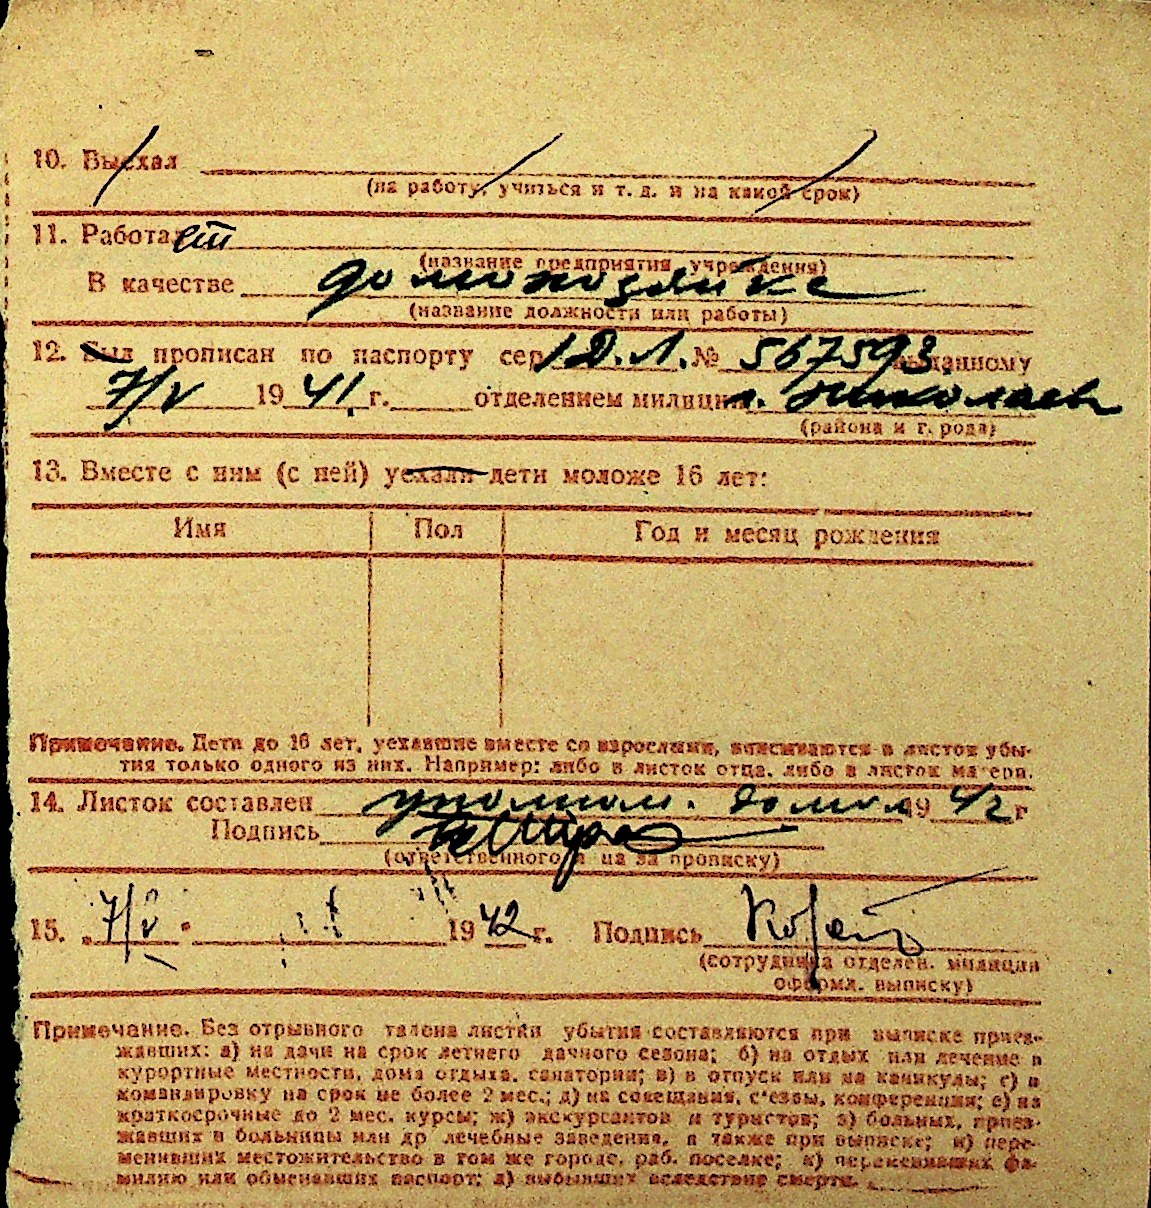 10. Выехал
(на работу, учиться и т. д. и на какой срок)
11. Работает
(название предприятия, учреждения)
В качестве домохозяйка
(название должности или работы)
12. Был прописан по паспорту сер. I Д.Л. № 567593 выданному
7/V 1941 г. отделением милиции г. Николаев
(района и города)
13. Вместе с ним (с ней) уехали дети моложе 16 лет:
Имя Пол Год и месяц рождения
Примечание. Дети до 16 лет, уехавшие вместе со взрослыми, вписываются в листок убы-
тия только одного из них. Например: либо в листок отца, либо в листок матери.
14. Листок составлен уполном. 1942 г
Подпись
(ответственного лица за прописку)
15. 7/V 1942 г. Подпись
(сотрудника отделен. милиции
оформл. выписку)
Примечание. Без отрывного талона листки убытия составляются при выписке приез-
жавших: а) на дачи на срок летнего дачного сезона; б) на отдых или лечение в
курортные местности, дома отдыха, санатории; в) в отпуск или на каникулы; г) в
командировку на срок не более 2 мес.; д) на совещания, с'езды, конференции; е) на
краткосрочные до 2 мес. курсы; ж) экскурсантов и туристов; з) больных, приез-
жавших в больницы или др лечебные заведения, а также при выписке; и) пере-
менивших местожительство в том же городе, раб. поселке; к) переменивших фа-
милию или обменявших паспорт; л) выбывших вследствие смерти.